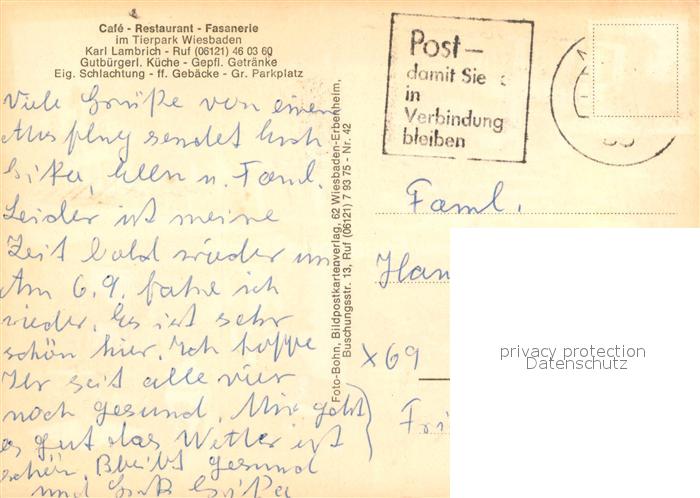 Café - Restaurant - Fasanerie
im Tierpark Wiesbaden
Karl Lambrich - Ruf (06121) 46 03 60
Gutbürgerl. Küche - Gepfl. Getränke
Eig. Schlachtung - ff. Gebäcke - Gr. Parkplatz
Viele Grüße von einen
Ausflug sendet Euch
Gika, Ellen u. Faml.
Leider ist meine
Zeit bald wieder um
Am 6.9. fahre ich
wieder. Es ist sehr
schön hier. Ich hoffe
Ihr seit alle vier
noch gesund. Mir geht
es gut das Wetter ist
schön. Bleibt gesund
und Gruß Gika
Foto-Bohn, Bildpostkartenverlag, 62 Wiesbaden-Erbenheim,
Buschungsstr. 13, Ruf (06121) 7 93 75 - Nr. 42
Post–
damit Sie
in
Verbindung
bleiben
Faml.
Han
X69
Fri
privacy protection
Datenschutz